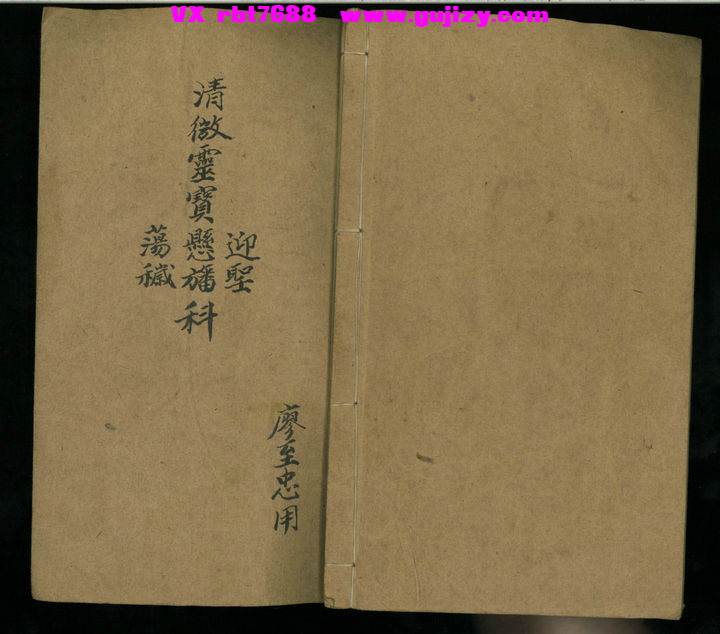 VX rbt7688 www.gujizy.com
迎聖
清微靈寶懸旛科
蕩穢
廖至忠用